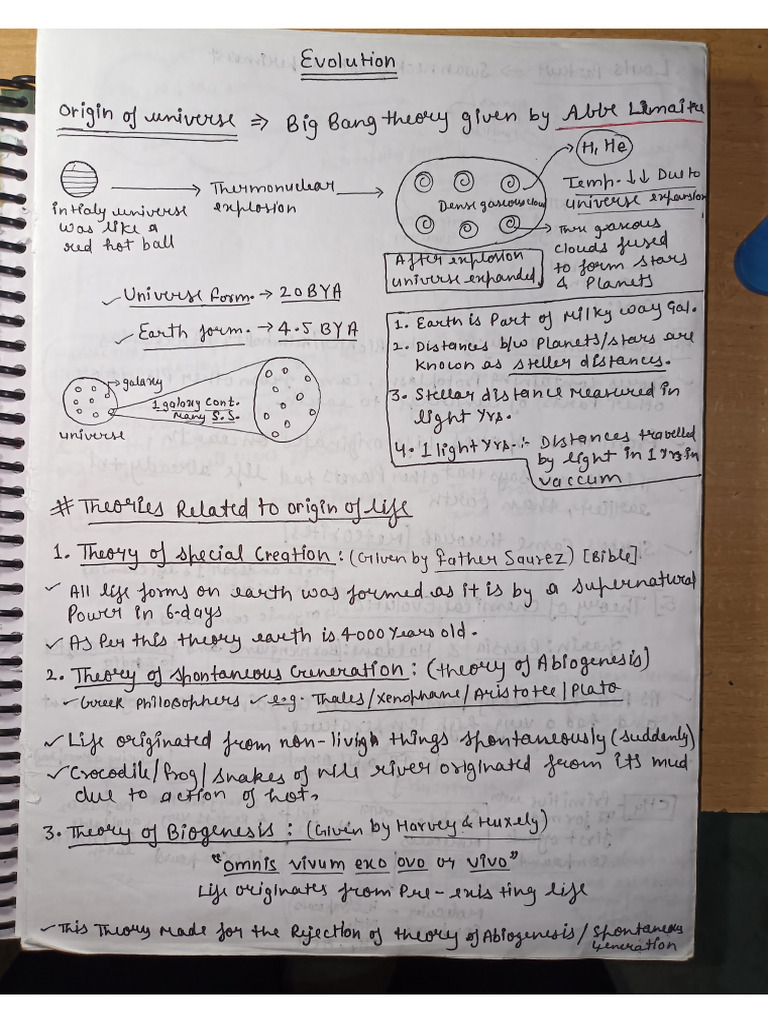 Evolution
Origin of universe ⇒ Big Bang theory given by Abbe Limaitre
H, He
Thermonuclear
explosion
initialy universe
was like a
red hot ball
Dense gaseous cloud
Temp. ↓↓ Due to
universe expansion
These gaseous
clouds fused
to form stars
& Planets
After explosion
universe expanded.
✓ Universe form. → 20 BYA
✓ Earth form. → 4.5 BYA
galaxy
1 galaxy cont.
many S.S.
universe
1. Earth is Part of Milky way Gal.
2. Distances b/w Planets/stars are
known as steller distances.
3. Stellar distance measured in
light yrs.
4. 1 light yrs. :- Distances travelled
by light in 1 yrs in
vaccum
# Theories Related to origin of life
1. Theory of special Creation : (Given by Father Saurez) [Bible].
✓ All life forms on earth was formed as it is by a supernatural
Power in 6-days
✓ As Per this theory earth is 4000 Years old.
2. Theory of spontaneous Generation : (theory of Abiogenesis)
✓ Greek Philosophers ✓ e.g. Thales/Xenophane/Aristotee/Plato
✓ Life originated from non-living things spontaneously (suddenly)
✓ Crocodile/frog/snakes of nile river originated from its mud
due to action of hot.
3. Theory of Biogenesis : (Given by Harvey & Huxely)
"omnis vivum exo ovo or vivo"
Life originates from Pre-existing life
✓ This Theory made for the Rejection of theory of Abiogenesis/spontaneous
Generation